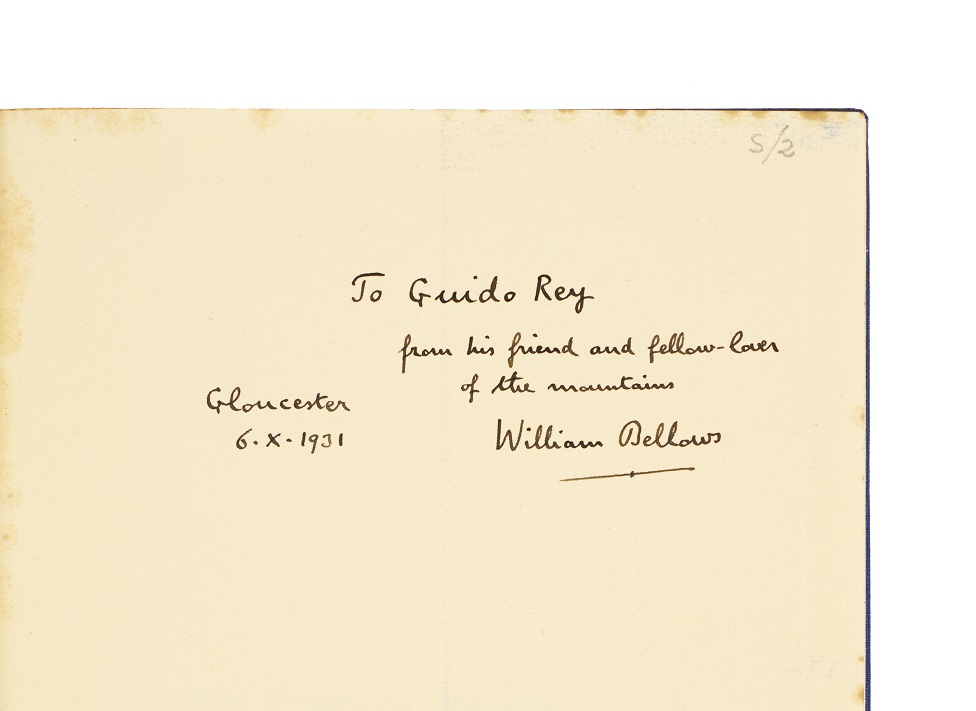 S/2
To Guido Rey
from his friend and fellow-lover
of the mountains
Gloucester
6.X.1931
William Bellows